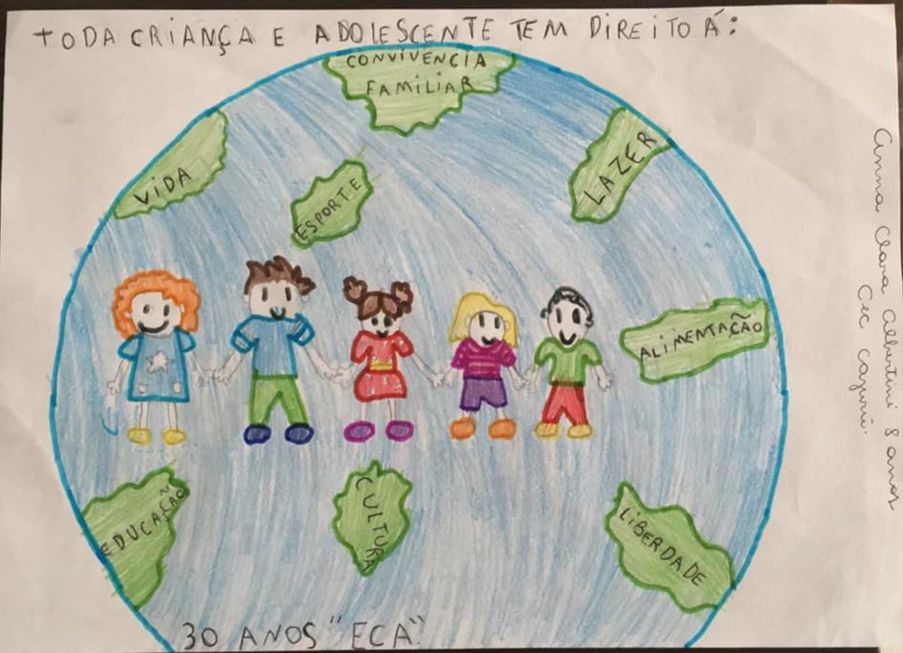 TODA CRIANÇA E ADOLESCENTE TEM DIREITO Á:
CONVIVÊNCIA
FAMILIAR
VIDA
ESPORTE
LAZER
ALIMENTAÇÃO
EDUCAÇÃO
CULTURA
LIBERDADE
30 ANOS "ECA".
Anna Clara Albertini 8 anos